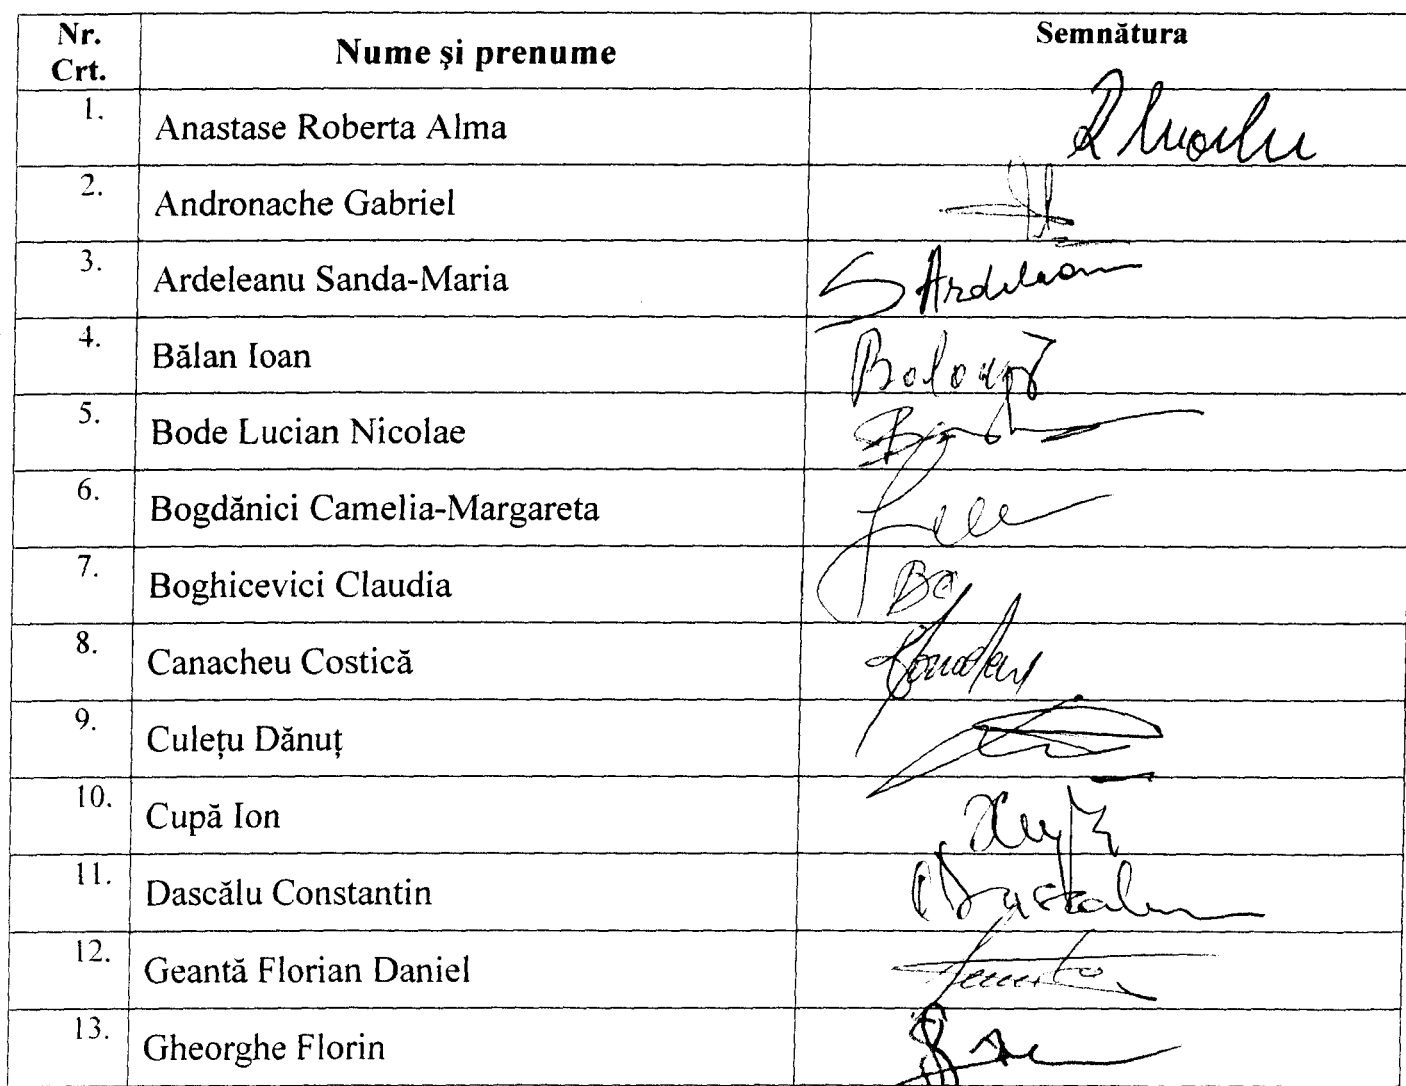 Nr. Crt. Nume şi prenume Semnătura
1. Anastase Roberta Alma
2. Andronache Gabriel
3. Ardeleanu Sanda-Maria S Ardelean
4. Bălan Ioan
5. Bode Lucian Nicolae
6. Bogdănici Camelia-Margareta
7. Boghicevici Claudia BC
8. Canacheu Costică
9. Culeţu Dănuţ
10. Cupă Ion
11. Dascălu Constantin
12. Geantă Florian Daniel
13. Gheorghe Florin